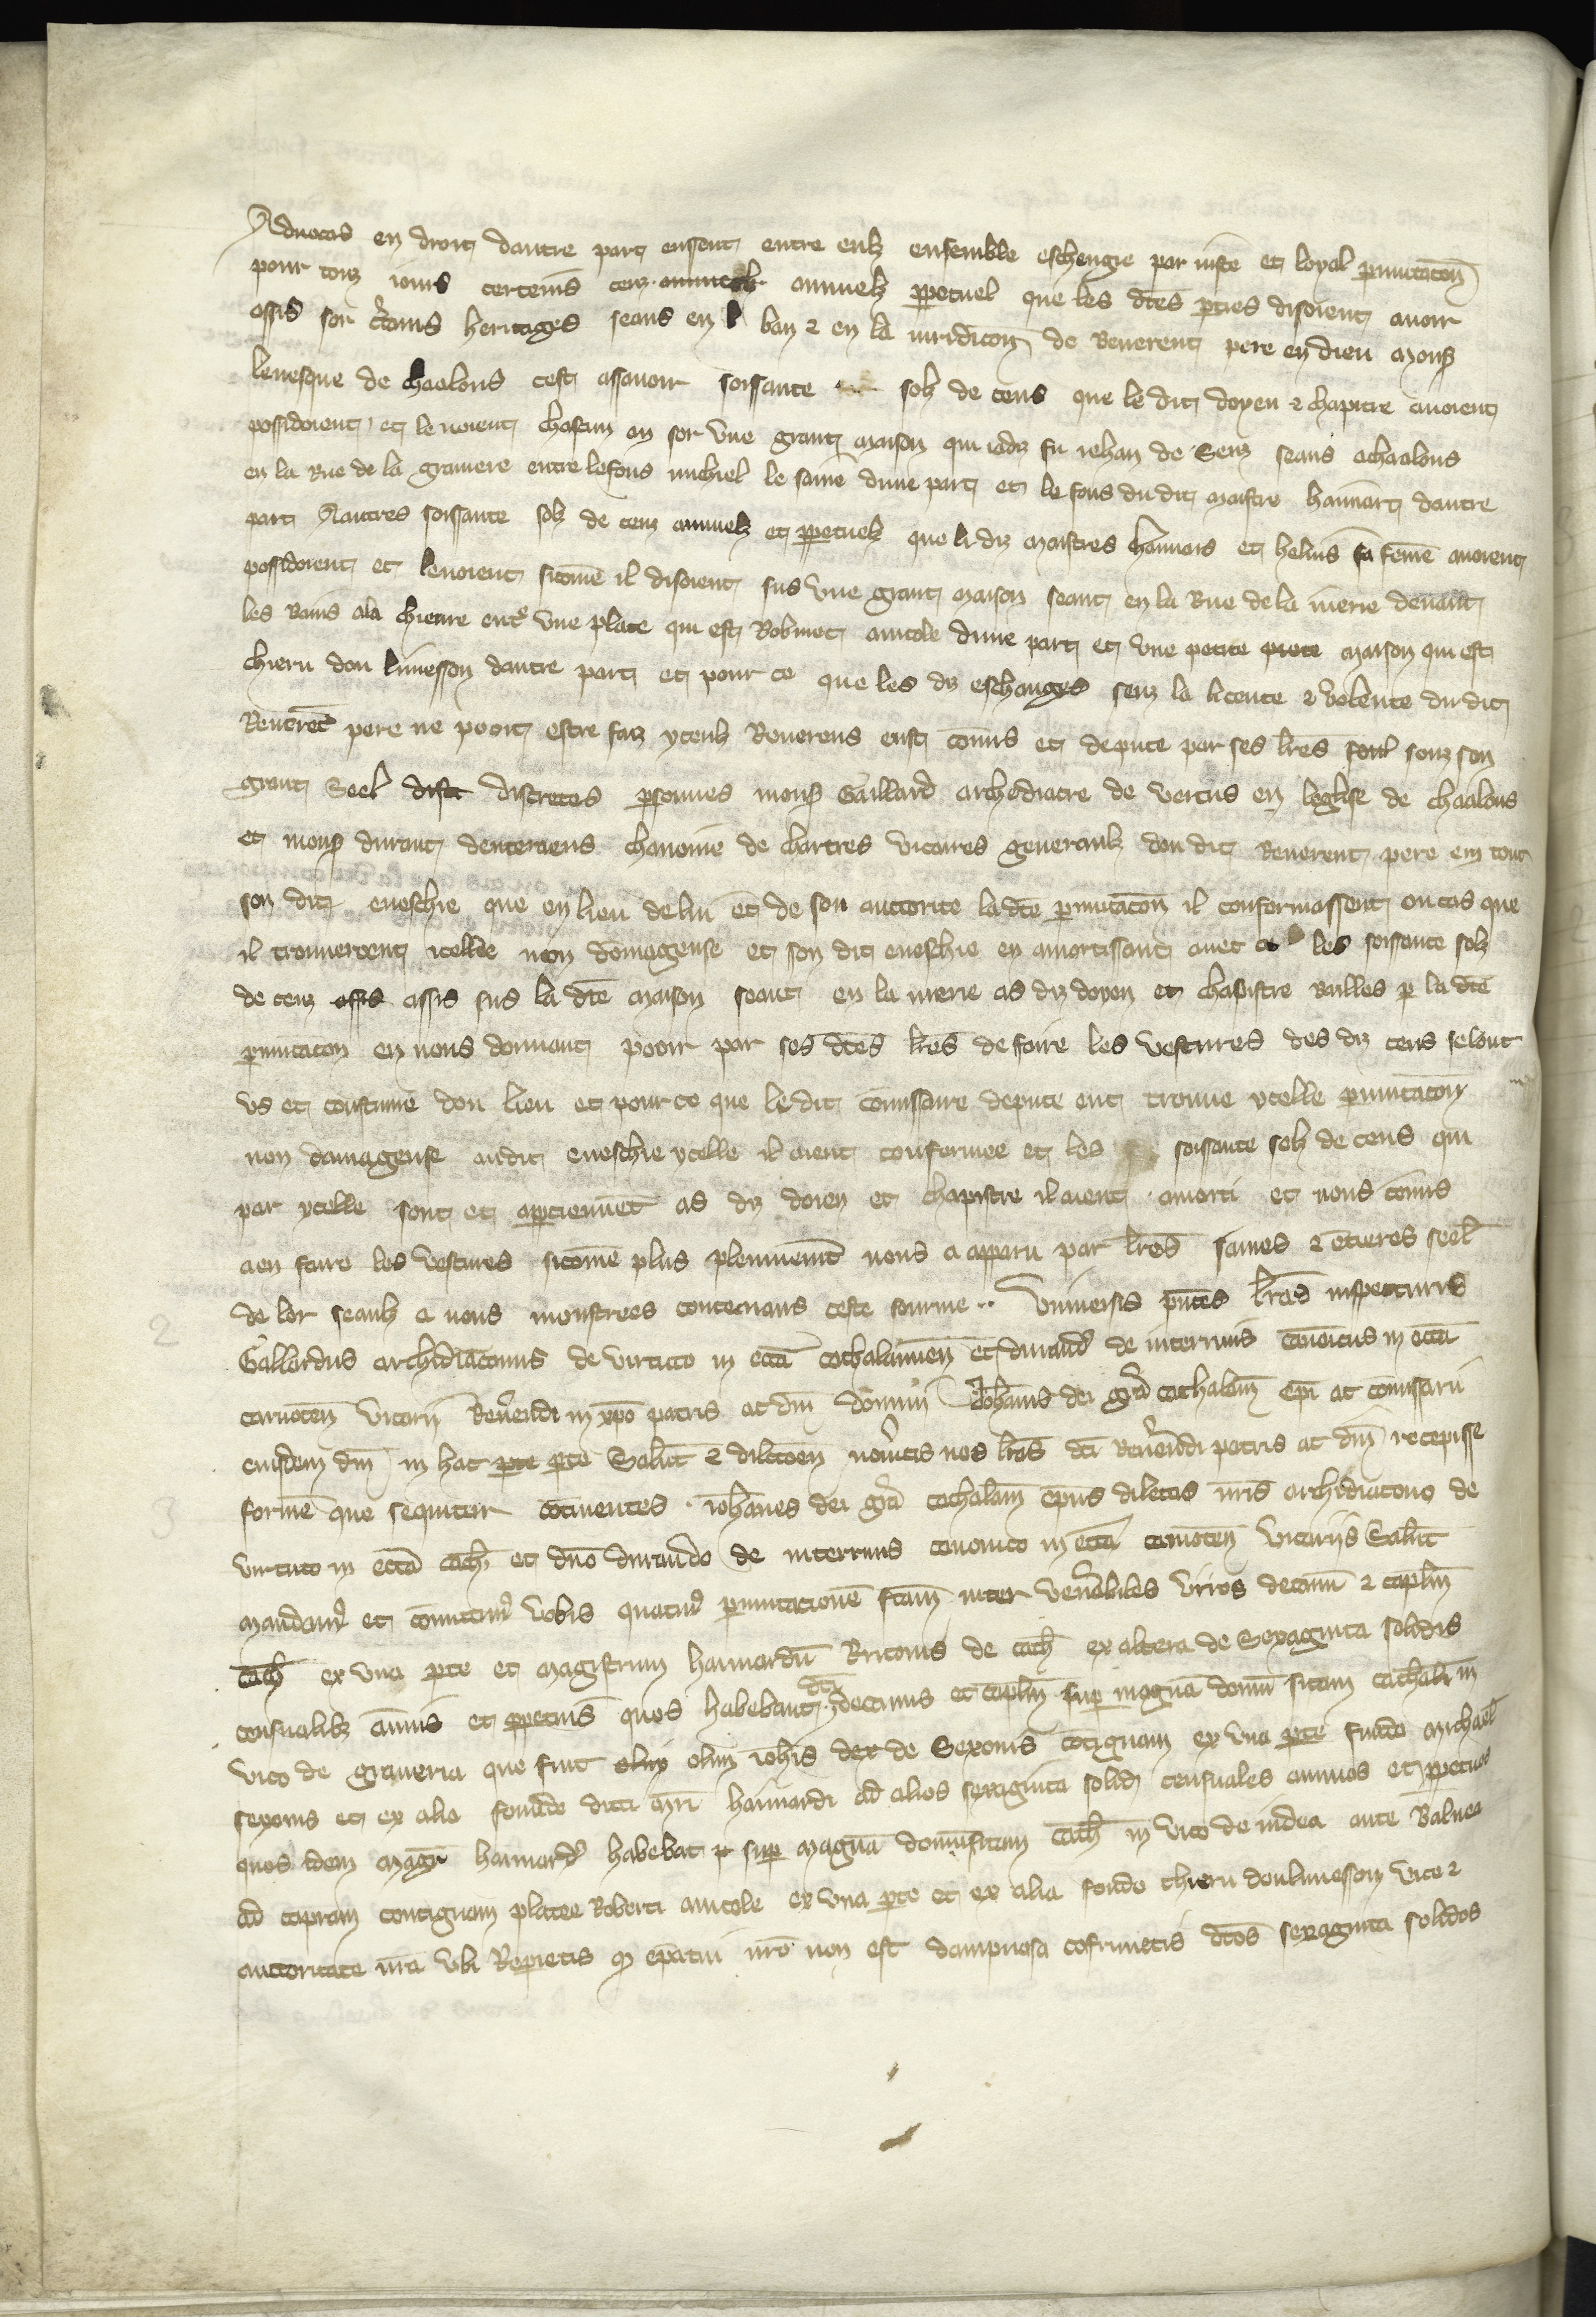 Aduocas en droit dautre part eussent entre eulz ensemble eschengie par iuste et loyal pmutacon
pour touz iours certeins cenz annuelz annuelz ppetuel que les dtes pties disoient auoir
assis sor ctains heritages seans en l ban 2 en la iuridicon de Reuerent pere en dieu mons
leuesque de chaalons cest assauoir soissante solz de cens que le dit doyen 2 chapitre auoient
possidoient et leuoient chascun an sor vne grant maison qui iadiz fu iehan de Senz seans achaalons
en la Rue de la grauiere entre lefons michiel le saine dune part et le fons du dit maistre hannart dautre
part Aautres soissante solz de cenz annuelz et ppetuelz que li diz maistres hannars et heluis sa feme auoient
possidoient et leuoient sicome il disoient sus vne grant maison seant en la Rue de la iuerie deuant
les Bains ala chieure entre vne place qui est Robinet auicole dune part et vne petite maison qui est
thieru dou limesson dautre part et pour ce que les diz eschanges senz la licence 2 volente du dit
Reueret pere ne pooit estre faiz yceulz Reuerens eust comis et depute par ses lres souz son
grant Seel disc discretes psonnes mons Gaillard archediacre de vertus en leglise de chaalons
et mons durant denteriens chanoine de chartres vicaires generaulz dou dit Reuerent pere em tout
son dit eueschie que en lieu de lui et de son auctorite la dte pmutacon il confermassent ou cas que
il trouueroent icelle non domageuse et son dit eueschie en amortissant auec ce les soissante solz
de cenz assis assis sus la dte maison seant en la iuerie as diz doyen et chapistre baillies p la dte
pmutacon en nous donnant pooir par ses dtes lres de faire les vestures des diz cens selonc
vs et coustume dou lieu et pour ce que le dit comissaire depute ont trouue ycelle pmutacon
non damageuse audit eueschie ycelle il aient confermee et les soissante solz de cens qui
par ycelle sont et apptiennet as diz doien et chapistre il aient amorti et nous comis
aen faire les vestures sicome plus plennement nous a apparu par lres saines 2 etieres seel
de lor seaulz a nous monstrees contenans ceste fourme Vniuersis pntes lras inspecturis
Gallardus archidiaconus de virtuto in ecca cathalaunen et durand de interriuis canoicus in ecca
carnoten vicarii Reuendi in xpo patris ac dni domini Johannis dei gra cathalan epi ac comissarii
eiusdem dni in hac pte pte Salut 2 dilcoem noueritis nos lras dci Reuendi patris ac dni recepisse
forme que sequitur cotinentes iohanes dei gra cathalan epus dilectis nris archidiacono de
virtuto in ecca cath et dno durando de interriuis canonico in ecca carnoten vicariis Salut
mandam et comictim vobis quatin pmutacione fcam inter venebiles viros decanu 2 caplm
cath ex vna pte et magistrum hannardu Britonis de cath ex altera de Sexaginta solidis
censualibz annuis et ppetuis quos habebant dci decanus et caplm sup magna domu sitam cathali in
vico de graueria que fuit olim olim iohis dex de Sexonis cotiguam ex vna pte fundo michael
sexonis et ex alia fondo dicti mri hannardi ad alios sexaginta solid censuales annuos et ppetuos
quos idem magr hannard habebat sup magna domu sitam cath in vico de iudea ante Balnea
ad capram contiguam platee Roberti auicole ex vna pte et ex alia fondo thieru doulimesson vice 2
auctoritate nra vbi Reperietis q epatui nro non est dampnosa cofirmetis dcos sexaginta solidos